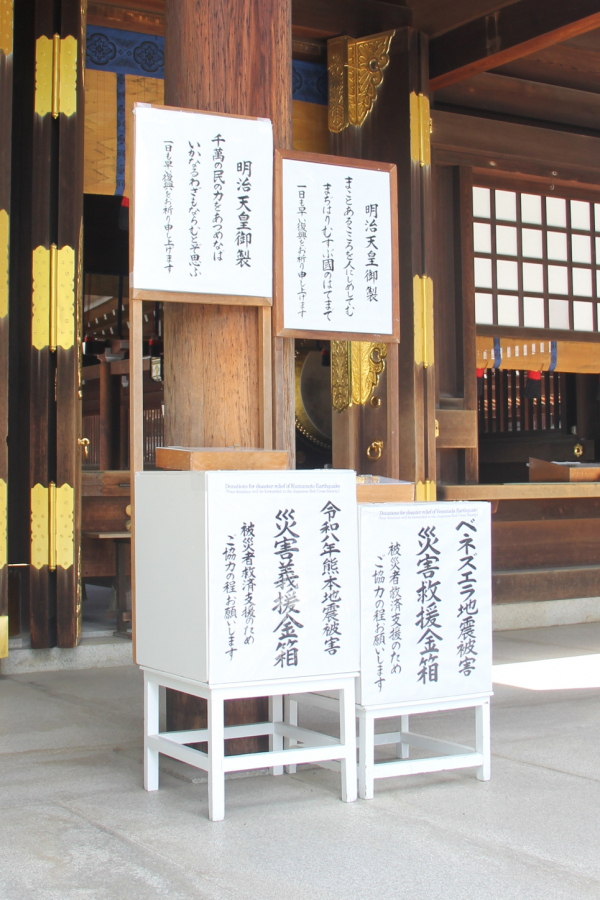 明治天皇御製
千萬の民の力をあつめなは
いかなるわざもならむとぞ思ふ
一日も早い復興をお祈り申し上げます
明治天皇御製
まことあるこころを人にしめしてむ
まぢはりむすぶ國のはてまで
一日も早い復興をお祈り申し上げます
Donations for disaster relief of Kumamoto Earthquake
令和八年熊本地震被害
災害義援金箱
被災者救済支援のため
ご協力の程お願いします
Donations for disaster relief of Venezuela Earthquake
ベネスエラ地震被害
災害救援金箱
被災者救済支援のため
ご協力の程お願いします